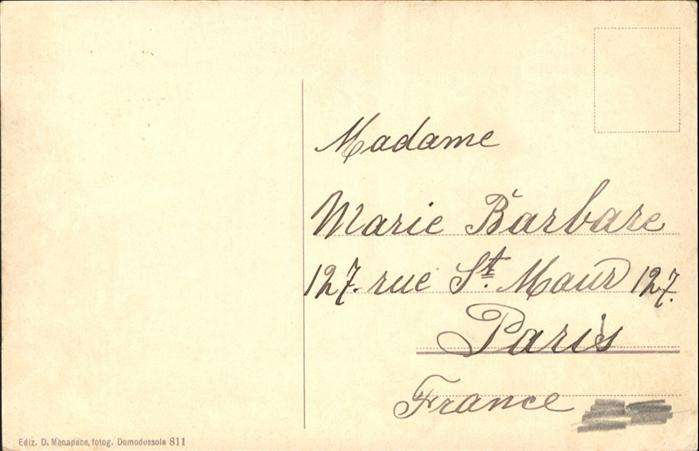 Madame
Marie Barbare
127. rue St. Maur 127.
Paris
France
Ediz. D. Menapace, fotog. Domodossola 811